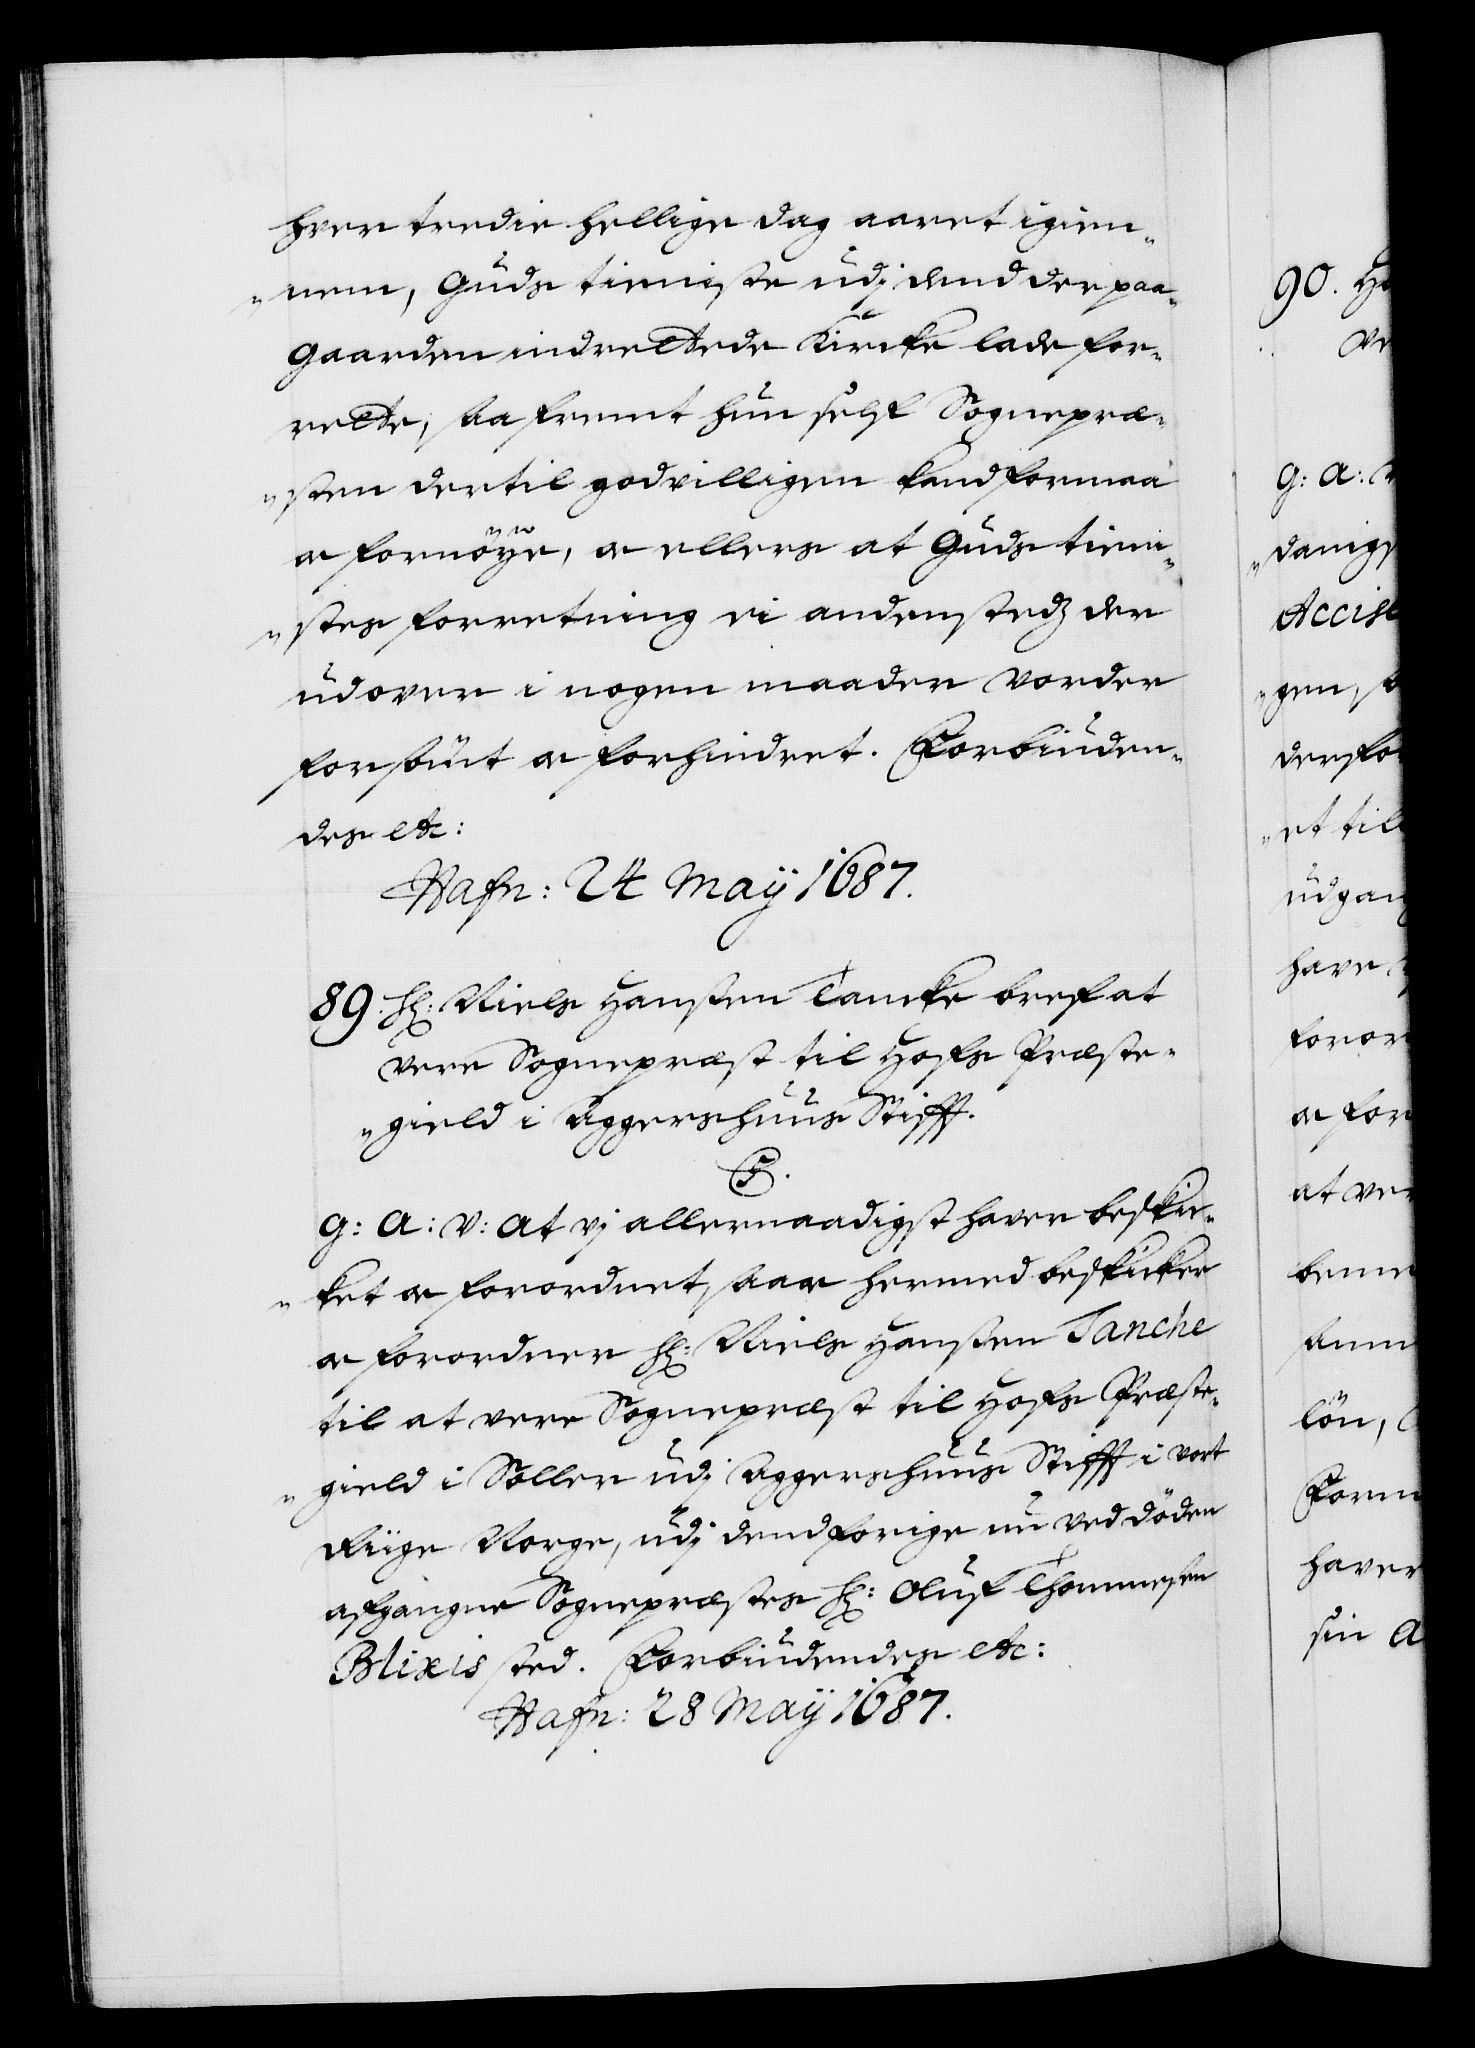 hver tredie hellige dag aaret igien-
nem, Guds tieniste udj dend der paa
Gaarden indrettede Kircke lade for-
rette, saafremt hun self Sognepræ-
sten dertil godvilligen kand formaa
oc fornöÿe, oc ellers at Guds tieni-
stes forretning ei andenstedz der
udover i nogen maader vorder
forsömt oc forhindret. Forbiuden-
des etc:
Hafn: 24 Maÿ 1687.
89. Hr: Niels Hanssen Tancke bref at
vere Sognepræst til Hofs Præste-
gield i Aggershuus Stifft.
C5.
G: A: V: At vj allernaadigst haver beskic-
ket oc forordnet, saa oc hermed beskicker
oc forordner Hr: Niels Hanssen Tanche
til at vere Sognepræst til Hofs Præste-
gield i Soller udj Aggershuus Stifft i vort
Riige Norge, udj dend forige nu ved döden
afgangne Sognepræstes Hr: Oluf Thommesen
Blixis sted. Forbiudendes etc:
Hafn: 28 Maÿ 1687.
90. H
Ve
G: A: V
danigs
Accise
gen, s
derfo
et til
udgan
have
foror
oc for
at ver
beme
lön,
Form
haver
sin A